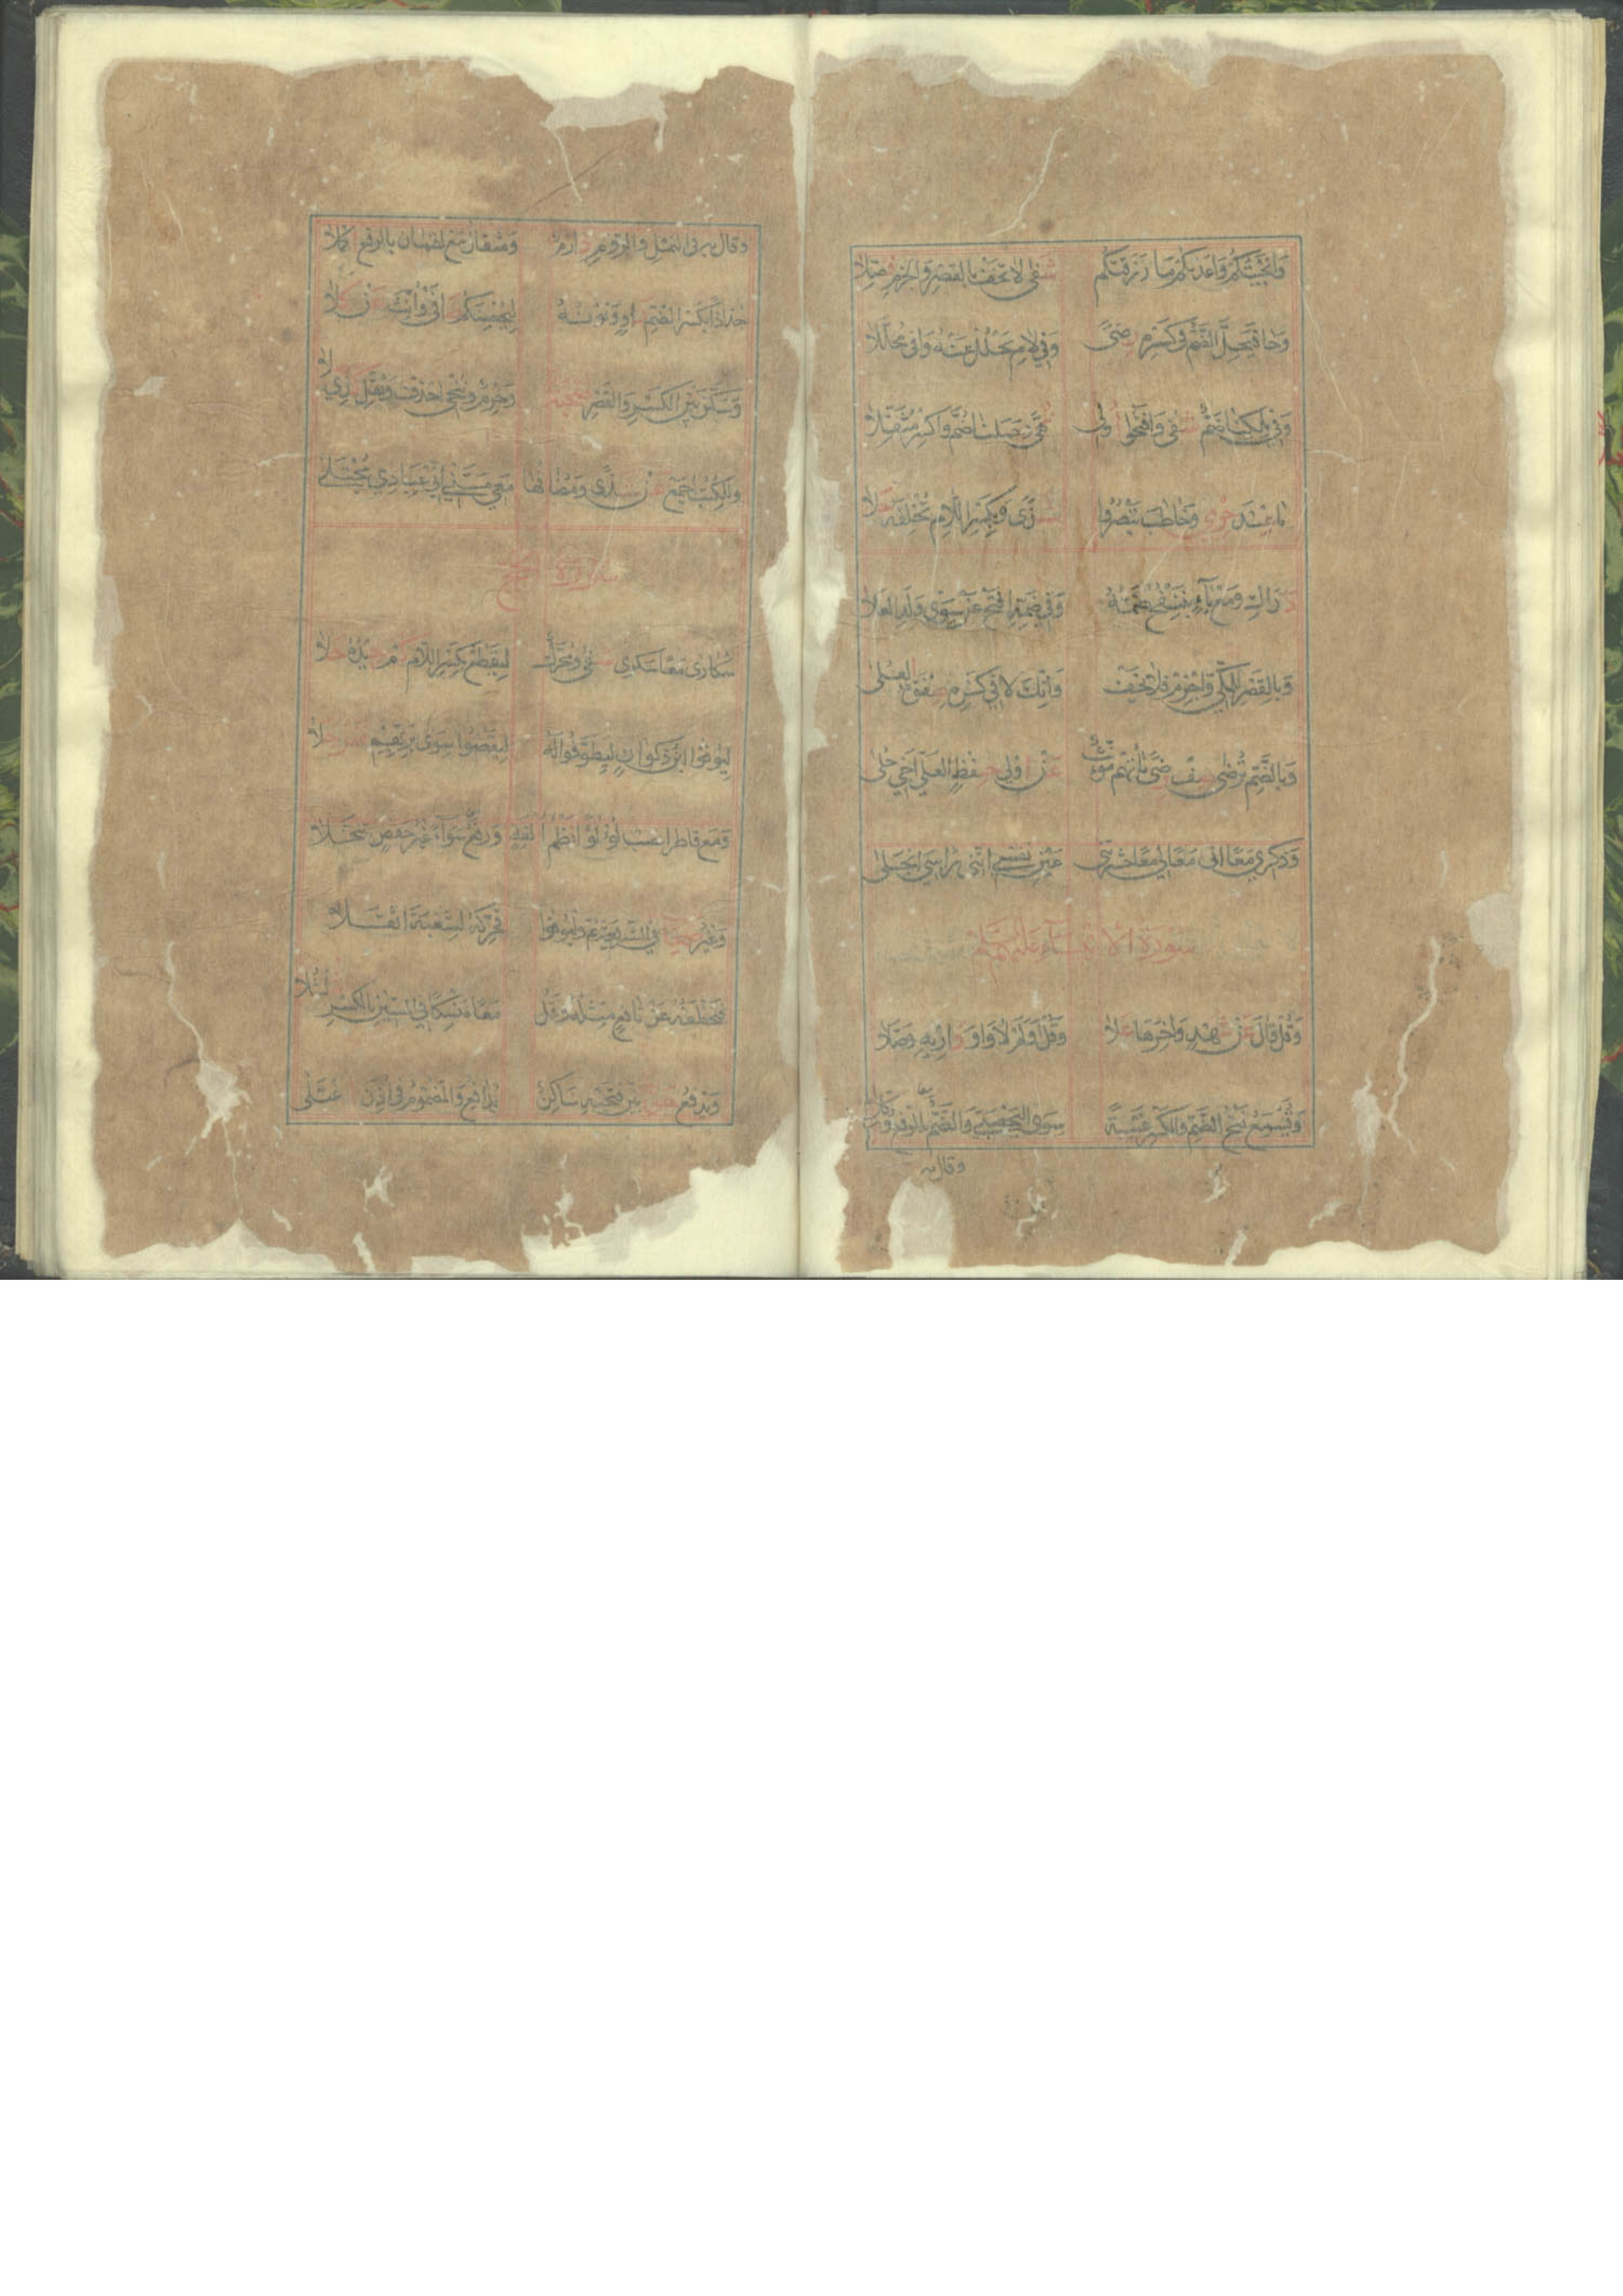 وَاَنْجَيْتُكُمْ وَاعَدْتُكُمْ مَا رَزَقْتُكُمْ شَفٰى لَا تَخَفْ بِالْقَصْرِ وَالْجَزْمِ فُصِّلَا
وَحَا فَيَحِلَّ الضَّمُّ فِى كَسْرِهِ رِضًى وَفِى لَامِ يَحْلُلْ عَنْهُ وَافٰى مُحَلَّلَا
وَفِى مَلْكِنَا ضَمٌّ شَفٰى وَافْتَحُوا اُولِى نُهًى وَحَمَلْنَا ضُمَّ وَاكْسِرْ مُثَقِّلَا
كَمَا عِنْدَ حِرْمِىٍّ وَخَاطَبَ تَبْصُرُوا شَذًى وَبِكَسْرِ اللَّامِ تُخْلِفَهُ حَلَا
دَرَاكِ وَمَعْ يَاءٍ بِنَنْفُخُ ضَمُّهُ وَفِى ضَمِّهِ افْتَحْ عَنْ سِوٰى وَلَدِ الْعَلَا
وَبِالْقَصْرِ لِلْمَكِّى وَاجْزِمْ فَلَا يَخَفْ وَاَنَّكَ لَا فِى كَسْرِهِ صَفْوَةُ الْعُلٰى
وَبِالضَّمِّ تُرْضٰى صِفْ رِضًى يَأْتِهِمْ مُؤَنَّثٌ عَنْ اُولِى حِفْظٍ لَعَلِّى اَخِى حُلٰى
وَذِكْرِى مَعًا اِنِّى مَعًا لِى مَعًا حَشَرْتَنِى عَيْنِ نَفْسِى اِنَّنِى رَأْسِى انْجَلٰى
سُورَةُ الْاَنْبِيَاءِ عَلَيْهِمُ السَّلَامُ
وَقُلْ قَالَ عَنْ شُهْدٍ وَاٰخِرُهَا عَلَا وَقُلْ اَوَلَمْ لَا وَاوَ دَارِيهِ وَصَّلَا
وَتُسْمِعُ فَتْحُ الضَّمِّ وَالْكَسْرِ غَيْبَةً سِوَى الْيَحْصُبِى وَالضُّمَّ بِالرَّفْعِ وُكِّلَا
وقال به
وقال به فى النمل والروم دارم ومثقال مع لقمان بالرفع اكملا
جُذَاذًا بِكَسْرِ الضَّمِّ رَاوٍ وَنُونُهُ لِيُحْصِنَكُمْ صَافٰى وَاُنِّثَ عَنْ كِلَا
وَسَكَّنَ بَيْنَ الْكَسْرِ وَالْقَصْرِ صُحْبَةٌ وَحِرْمٌ وَنُنْجِى احْذِفْ وَثَقِّلْ كَذِى صِلَا
وَلِلْكُتُبِ اجْمَعْ عَنْ شَذًى وَمُضَافُهَا مَعِى مَسَّنِى اِنِّى عِبَادِىَ مُجْتَلٰى
سورة الحج
سُكَارٰى مَعًا سَكْرٰى شَفٰى وَمُحَرَّكٌ لِيَقْطَعْ بِكَسْرِ اللَّامِ كَمْ جِيدُهُ حَلَا
لِيُوفُوا ابْنُ ذَكْوَانٍ لِيَطَّوَّفُوا لَهُ لِيَقْضُوا سِوٰى بَزِّيِّهِمْ نَفَرٌ جَلَا
وَمَعْ فَاطِرَ انْصِبْ لُؤْلُؤًا نَظْمُ اُلْفَةٍ وَرَفْعَ سَوَاءً غَيْرُ حَفْصٍ تَنَخَّلَا
وَغَيْرُ صِحَابٍ فِى الشَّرِيعَةِ ثُمَّ وَلْيُوَفُّوا فَحَرِّكْهُ لِشُعْبَةَ اَثْقَلَا
فَتَخْطَفُهُ عَنْ نَافِعٍ مِثْلُهُ وَقُلْ مَعًا مَنْسِكًا فِى السِّينِ بِالْكَسْرِ شُلْشُلَا
وَيَدْفَعُ حَقٌّ بَيْنَ فَتْحَيْهِ سَاكِنٌ يُدَافِعُ وَالْمَضْمُومُ فِى اَذِنَ اعْتَلٰى